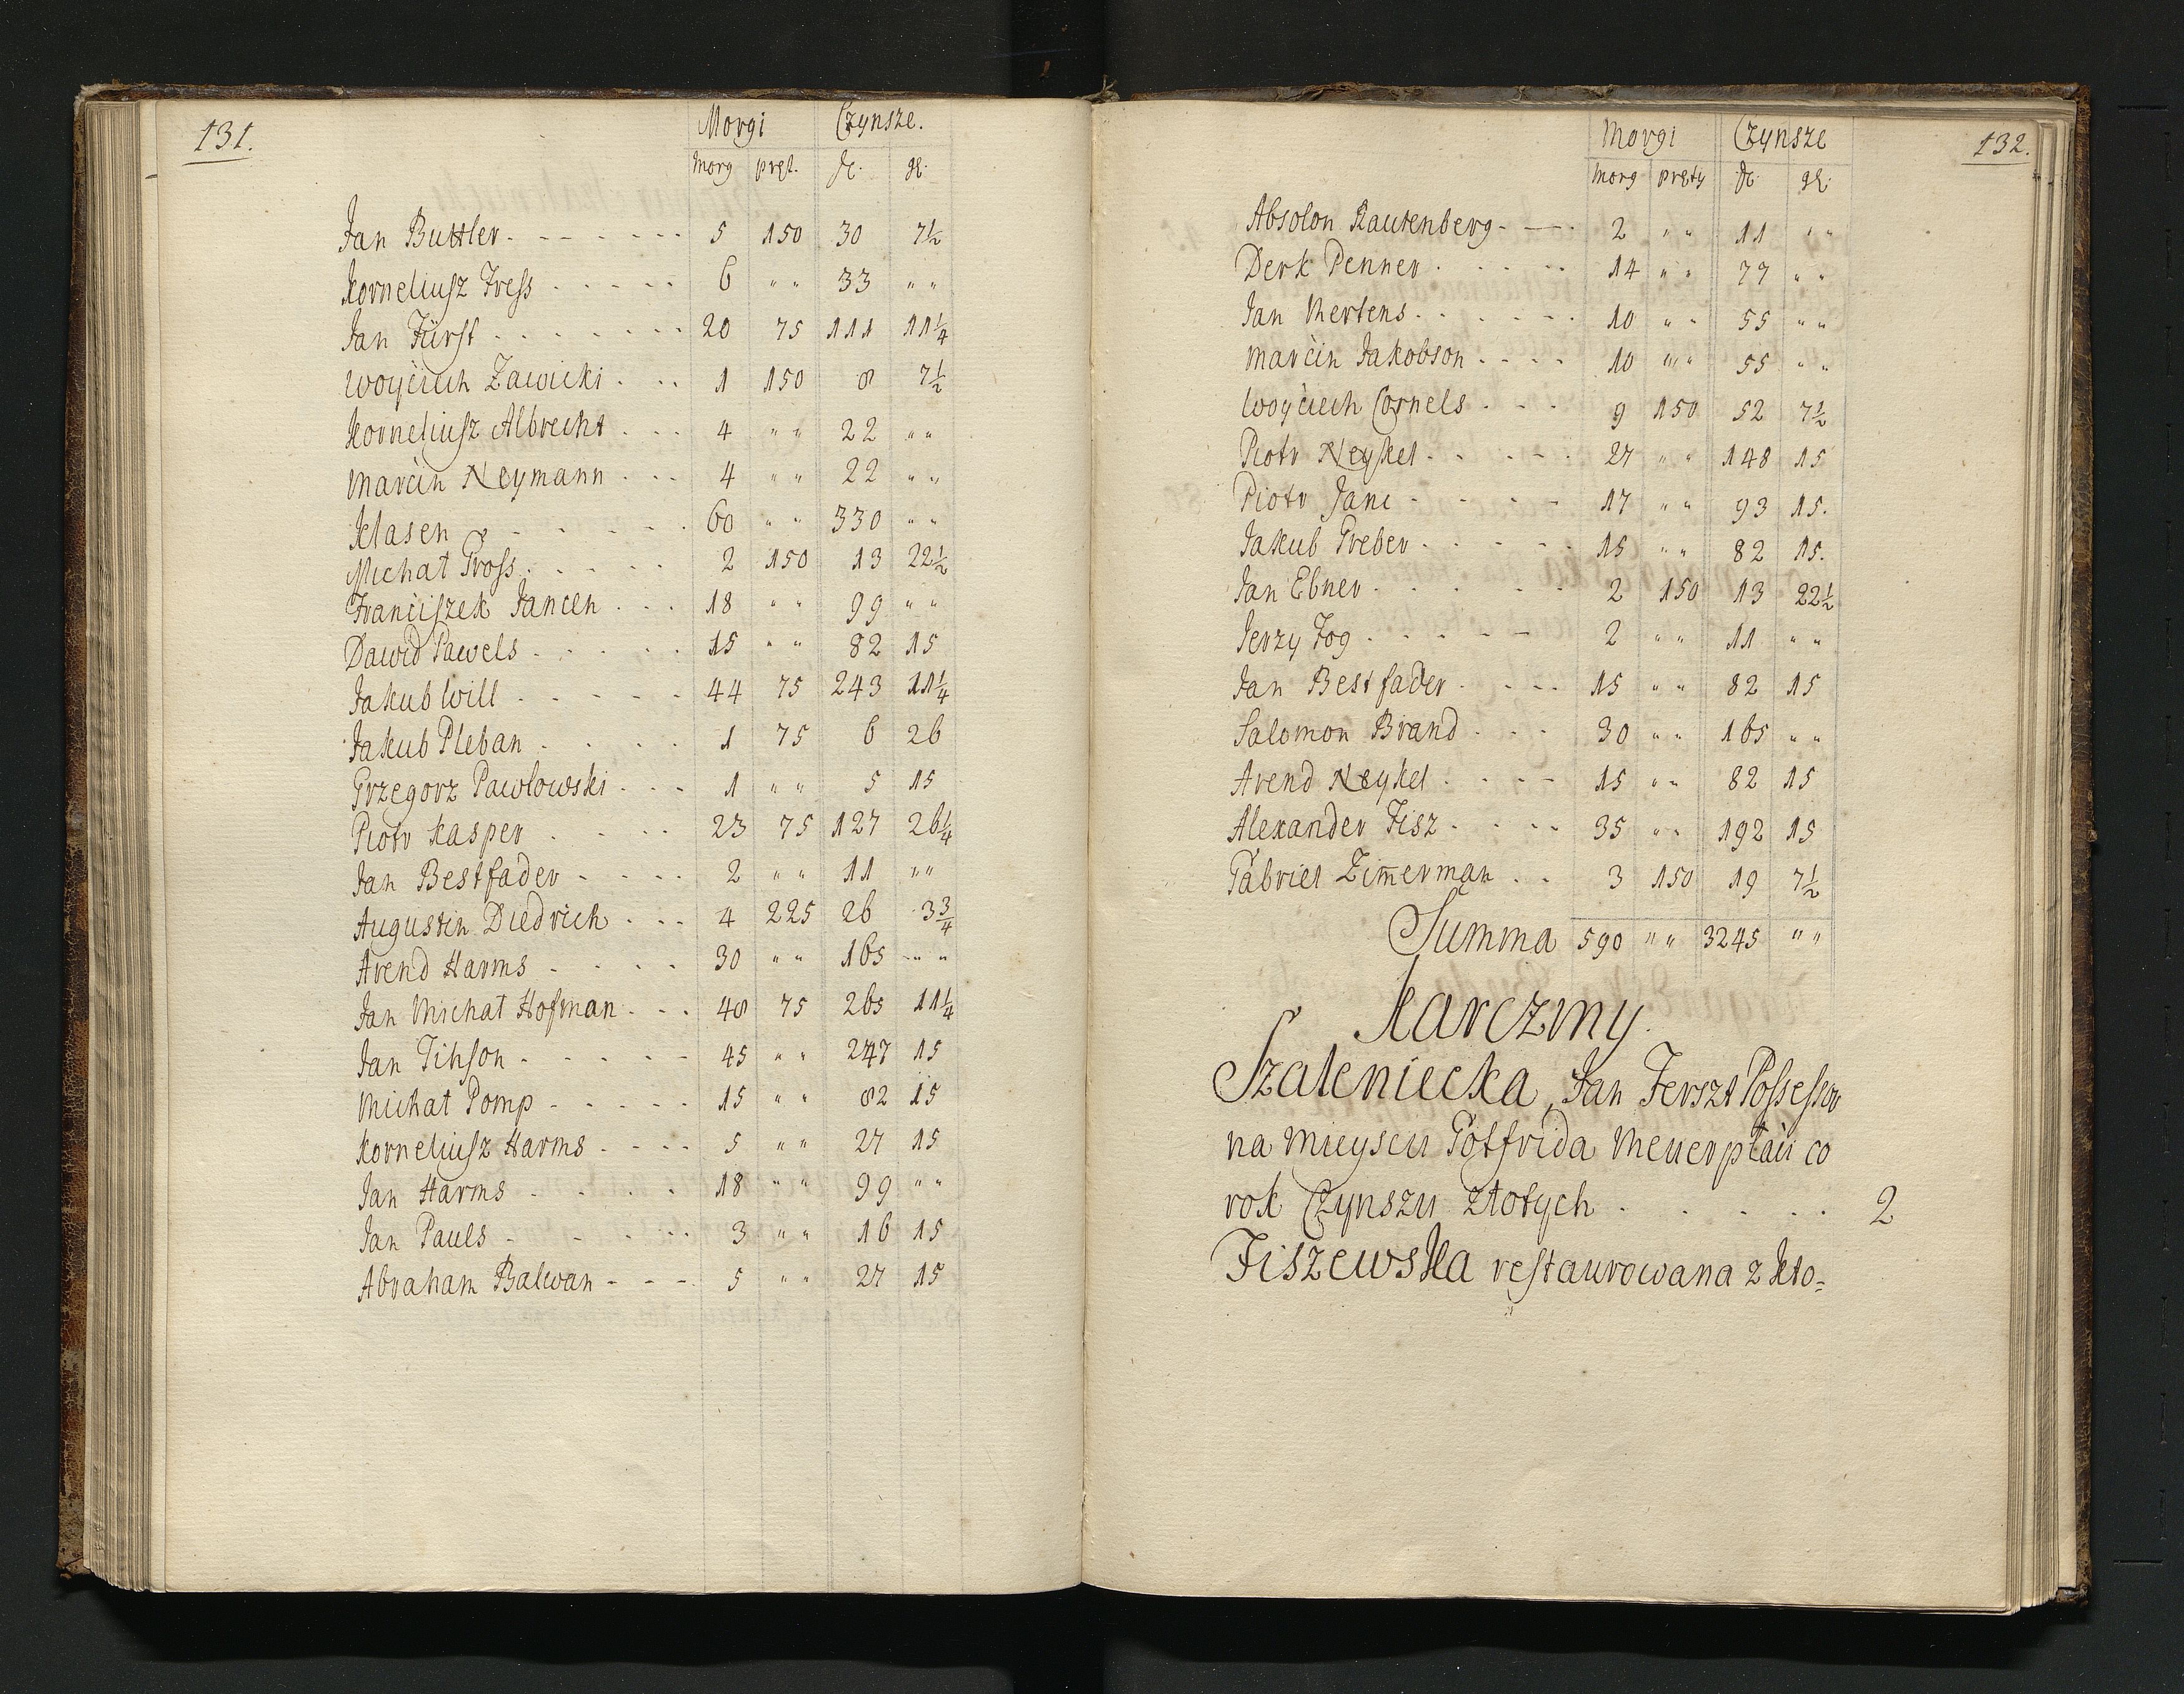 131.
Morgi Czynsze.
morg pręt. fl. gr.
Jan Buttler 5 150 30 7½
Korneliusz Fress 6 " " 33 " "
Jan Fürst 20 75 111 11¼
Woyciech Zawicki 1 150 8 7½
Korneliusz Albrecht 4 " " 22 " "
Marcin Neymann 4 " " 22 " "
Klasen 60 " " 330 " "
Michał Gross 2 150 13 22½
Franciszek Jancen 18 " " 99 " "
Dawid Pawels 15 " " 82 15
Jakub Will 44 75 243 11¼
Jakub Pleban 1 75 6 26
Grzegorz Pawłowski 1 " " 5 15
Piotr Kasper 23 75 127 26¼
Jan Bestfader 2 " " 11 " "
Augustin Diedrich 4 225 26 3¾
Arend Harms 30 " " 165 " "
Jan Michał Hofman 48 75 265 11¼
Jan Tihson 45 " " 247 15
Michał Pomp 15 " " 82 15
Korneliusz Harms 5 " " 27 15
Jan Harms 18 " " 99 " "
Jan Pauls 3 " " 16 15
Abraham Balwan 5 " " 27 15
132.
Morgi Czynsze
morg pręty fl. gr.
Absolon Rautenberg 2 " " 11 " "
Derk Penner 14 " " 77 " "
Jan Mertens 10 " " 55 " "
Marcin Jakobson 10 " " 55 " "
Woyciech Cornels 9 150 52 7½
Piotr Neykel 27 " " 148 15
Piotr Janc 17 " " 93 15.
Jakub Greber 15 " " 82 15.
Jan Ebner 2 150 13 22½
Jerzy Fog 2 " " 11 " "
Jan Bestfader 15 " " 82 15
Salomon Brand 30 " " 165 " "
Arend Neykel 15 " " 82 15
Alexander Fisz 35 " " 192 15
Gabriel Zim̄erman 3 150 19 7½
Summa 590 " " 3245 " "
Karczmy.
Szaleniecka, Jan Ferszt Possessor
na mieyscu Gotfrida Meuer płaci co
rok Czynszu złotych 2
Fiszewska restaurowana z kto-